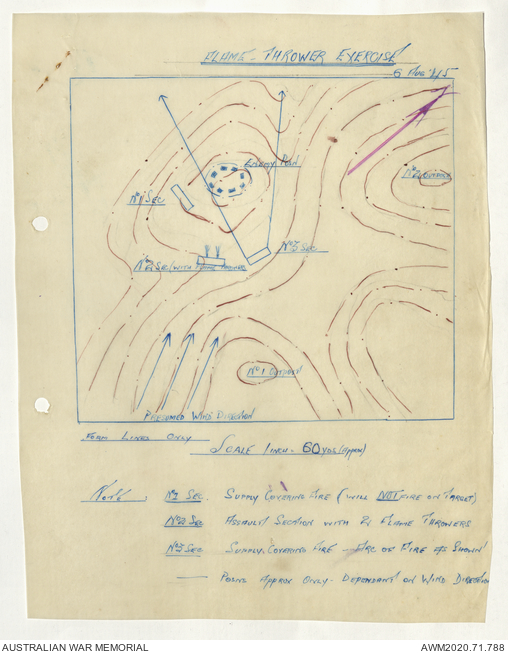 FLAME-THROWER EXERCISE
6 Aug 45
ENEMY POSN
No 2 OUTPOST
No 1 SEC
No 3 SEC
No 2 SEC (WITH FLAME THROWER
No 1 OUTPOST
PRESUMED WIND DIRECTION
FORM LINES ONLY
SCALE 1 INCH - 60 YDS (APPROX)
NOTE. No 1 SEC. SUPPLY COVERING FIRE (WILL NOT FIRE ON TARGET)
No 2 SEC ASSAULT SECTION WITH 2 FLAME THROWERS
No 3 SEC SUPPLY COVERING FIRE - ARC OF FIRE AS SHOWN
— POSNS APPROX ONLY - DEPENDANT ON WIND DIRECTION
AUSTRALIAN WAR MEMORIAL
AWM2020.71.788